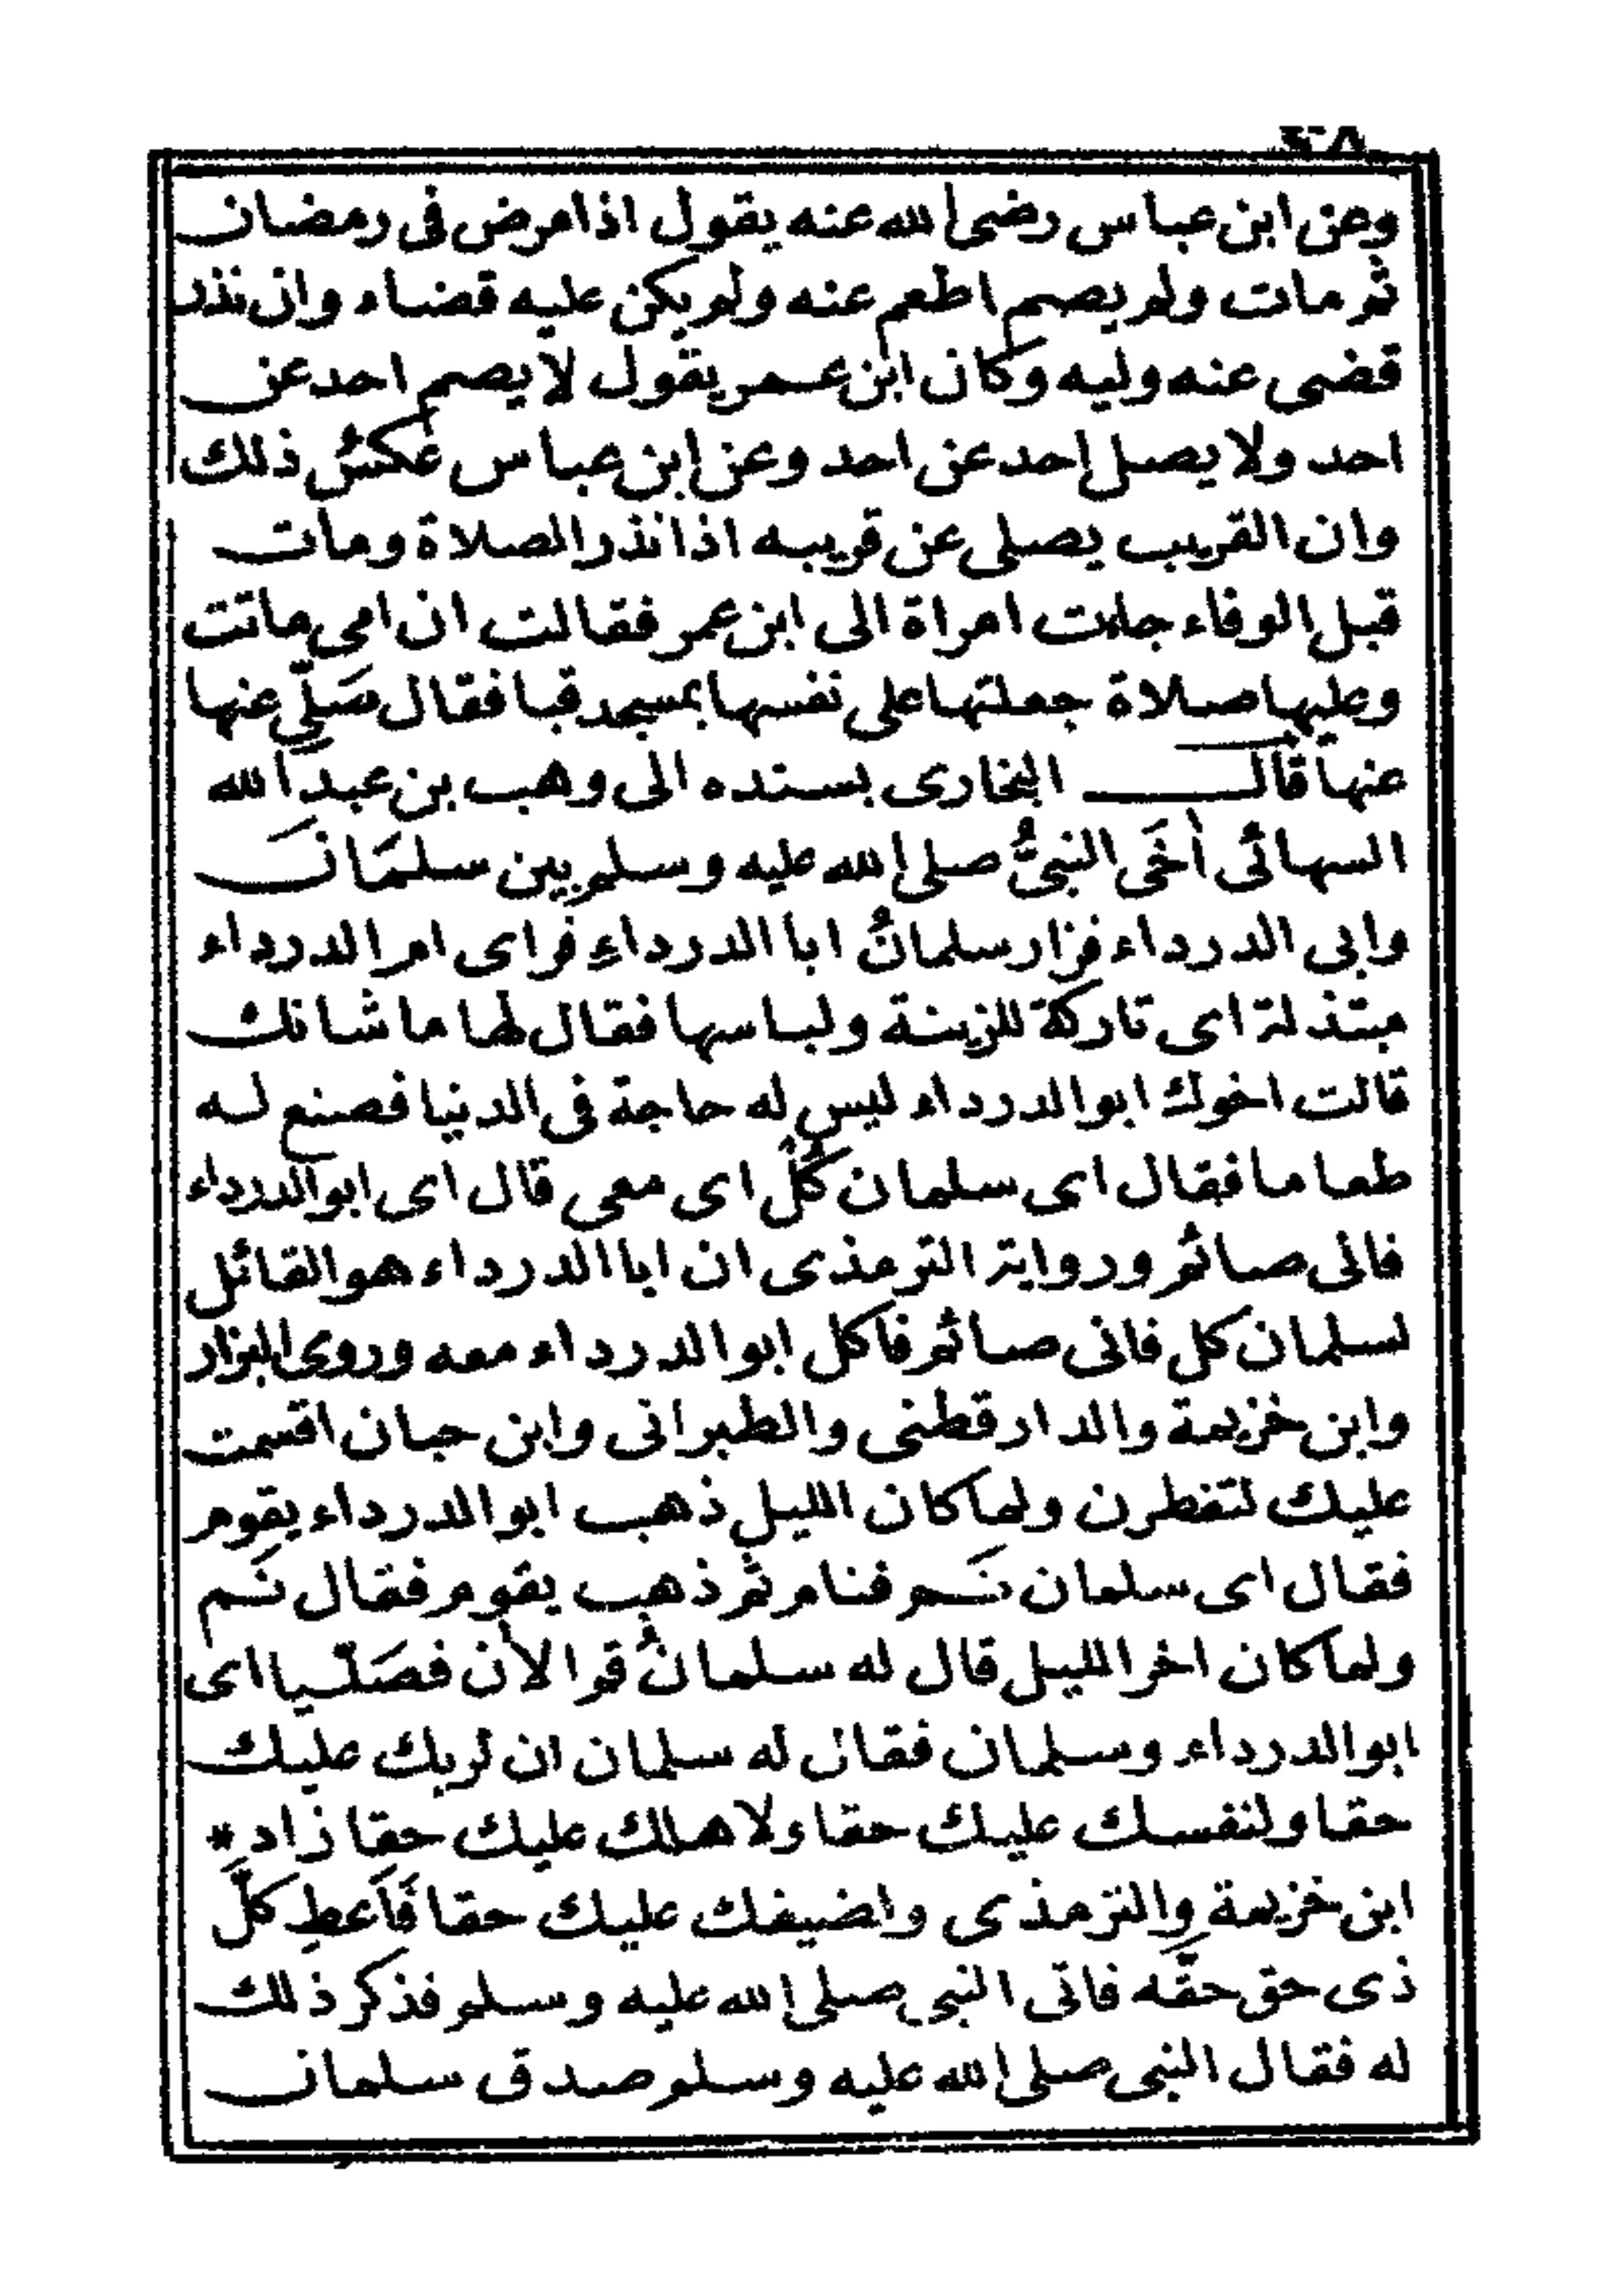 وعن ابن عباس رضى الله عنه يقول اذا مرض فى رمضان
ثم مات ولم يصم اطعم عنه ولم يكن عليه قضاء وان نذر
قضى عنه وليه وكان ابن عمر يقول لا يصم احد عن
احد ولا يصل احد عن احد وعن ابن عباس عكسُ ذلك
وان القريب يصلى عن قريبه اذا نذر الصلاة ومات
قبل الوفاء جاءت امراة الى ابن عمر فقالت ان امى ماتت
وعليها صلاة جعلتها على نفسها بمسجد قبا فقال صَلِّى عنها
عنها قال البخارى بسنده الى وهب بن عبد الله
السهائى أخَى النبىُّ صلى الله عليه وسلم بين سلمَانَ
وابى الدرداء فزار سلمانُ ابا الدرداءِ فراى ام الدرداء
مبتذلة اى تاركة للزينة ولباسها فقال لها ما شانك
قالت اخوك ابو الدرداء ليس له حاجة فى الدنيا فصنع له
طعاما فقال اى سلمان كُلْ اى معى قال اى ابو الدرداء
فانى صائم ورواية الترمذى ان ابا الدرداء هو القائل
لسلمان كل فانى صائم فاكل ابو الدرداء معه وروى البزار
وابن خزيمة والدارقطنى والطبرانى وابن حبان اقسمت
عليك لتفطرن ولما كان الليل ذهب ابو الدرداء يقوم
فقال اى سلمان نَم فنام ثم ذهب يقوم فقال نَم
ولما كان اخر الليل قال له سلمانُ قم الأن فصَلّيا اى
ابو الدرداء وسلمان فقال له سلمان ان لربك عليك
حقا ولنفسك عليك حقا ولاهلك عليك حقا زاد *
ابن خزيمة والترمذى واضيفك عليك حقا فَاَعطِ كلَّ
ذى حق حقَّه فاتى النبى صلى الله عليه وسلم فذكر ذلك
له فقال النبى صلى الله عليه وسلم صدق سلمان